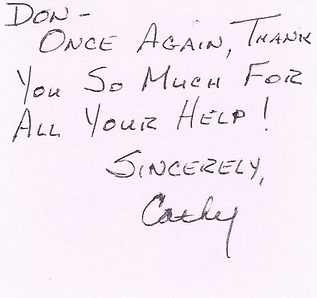 DON-
ONCE AGAIN, THANK
YOU SO MUCH FOR
ALL YOUR HELP!
SINCERELY,
Cathy